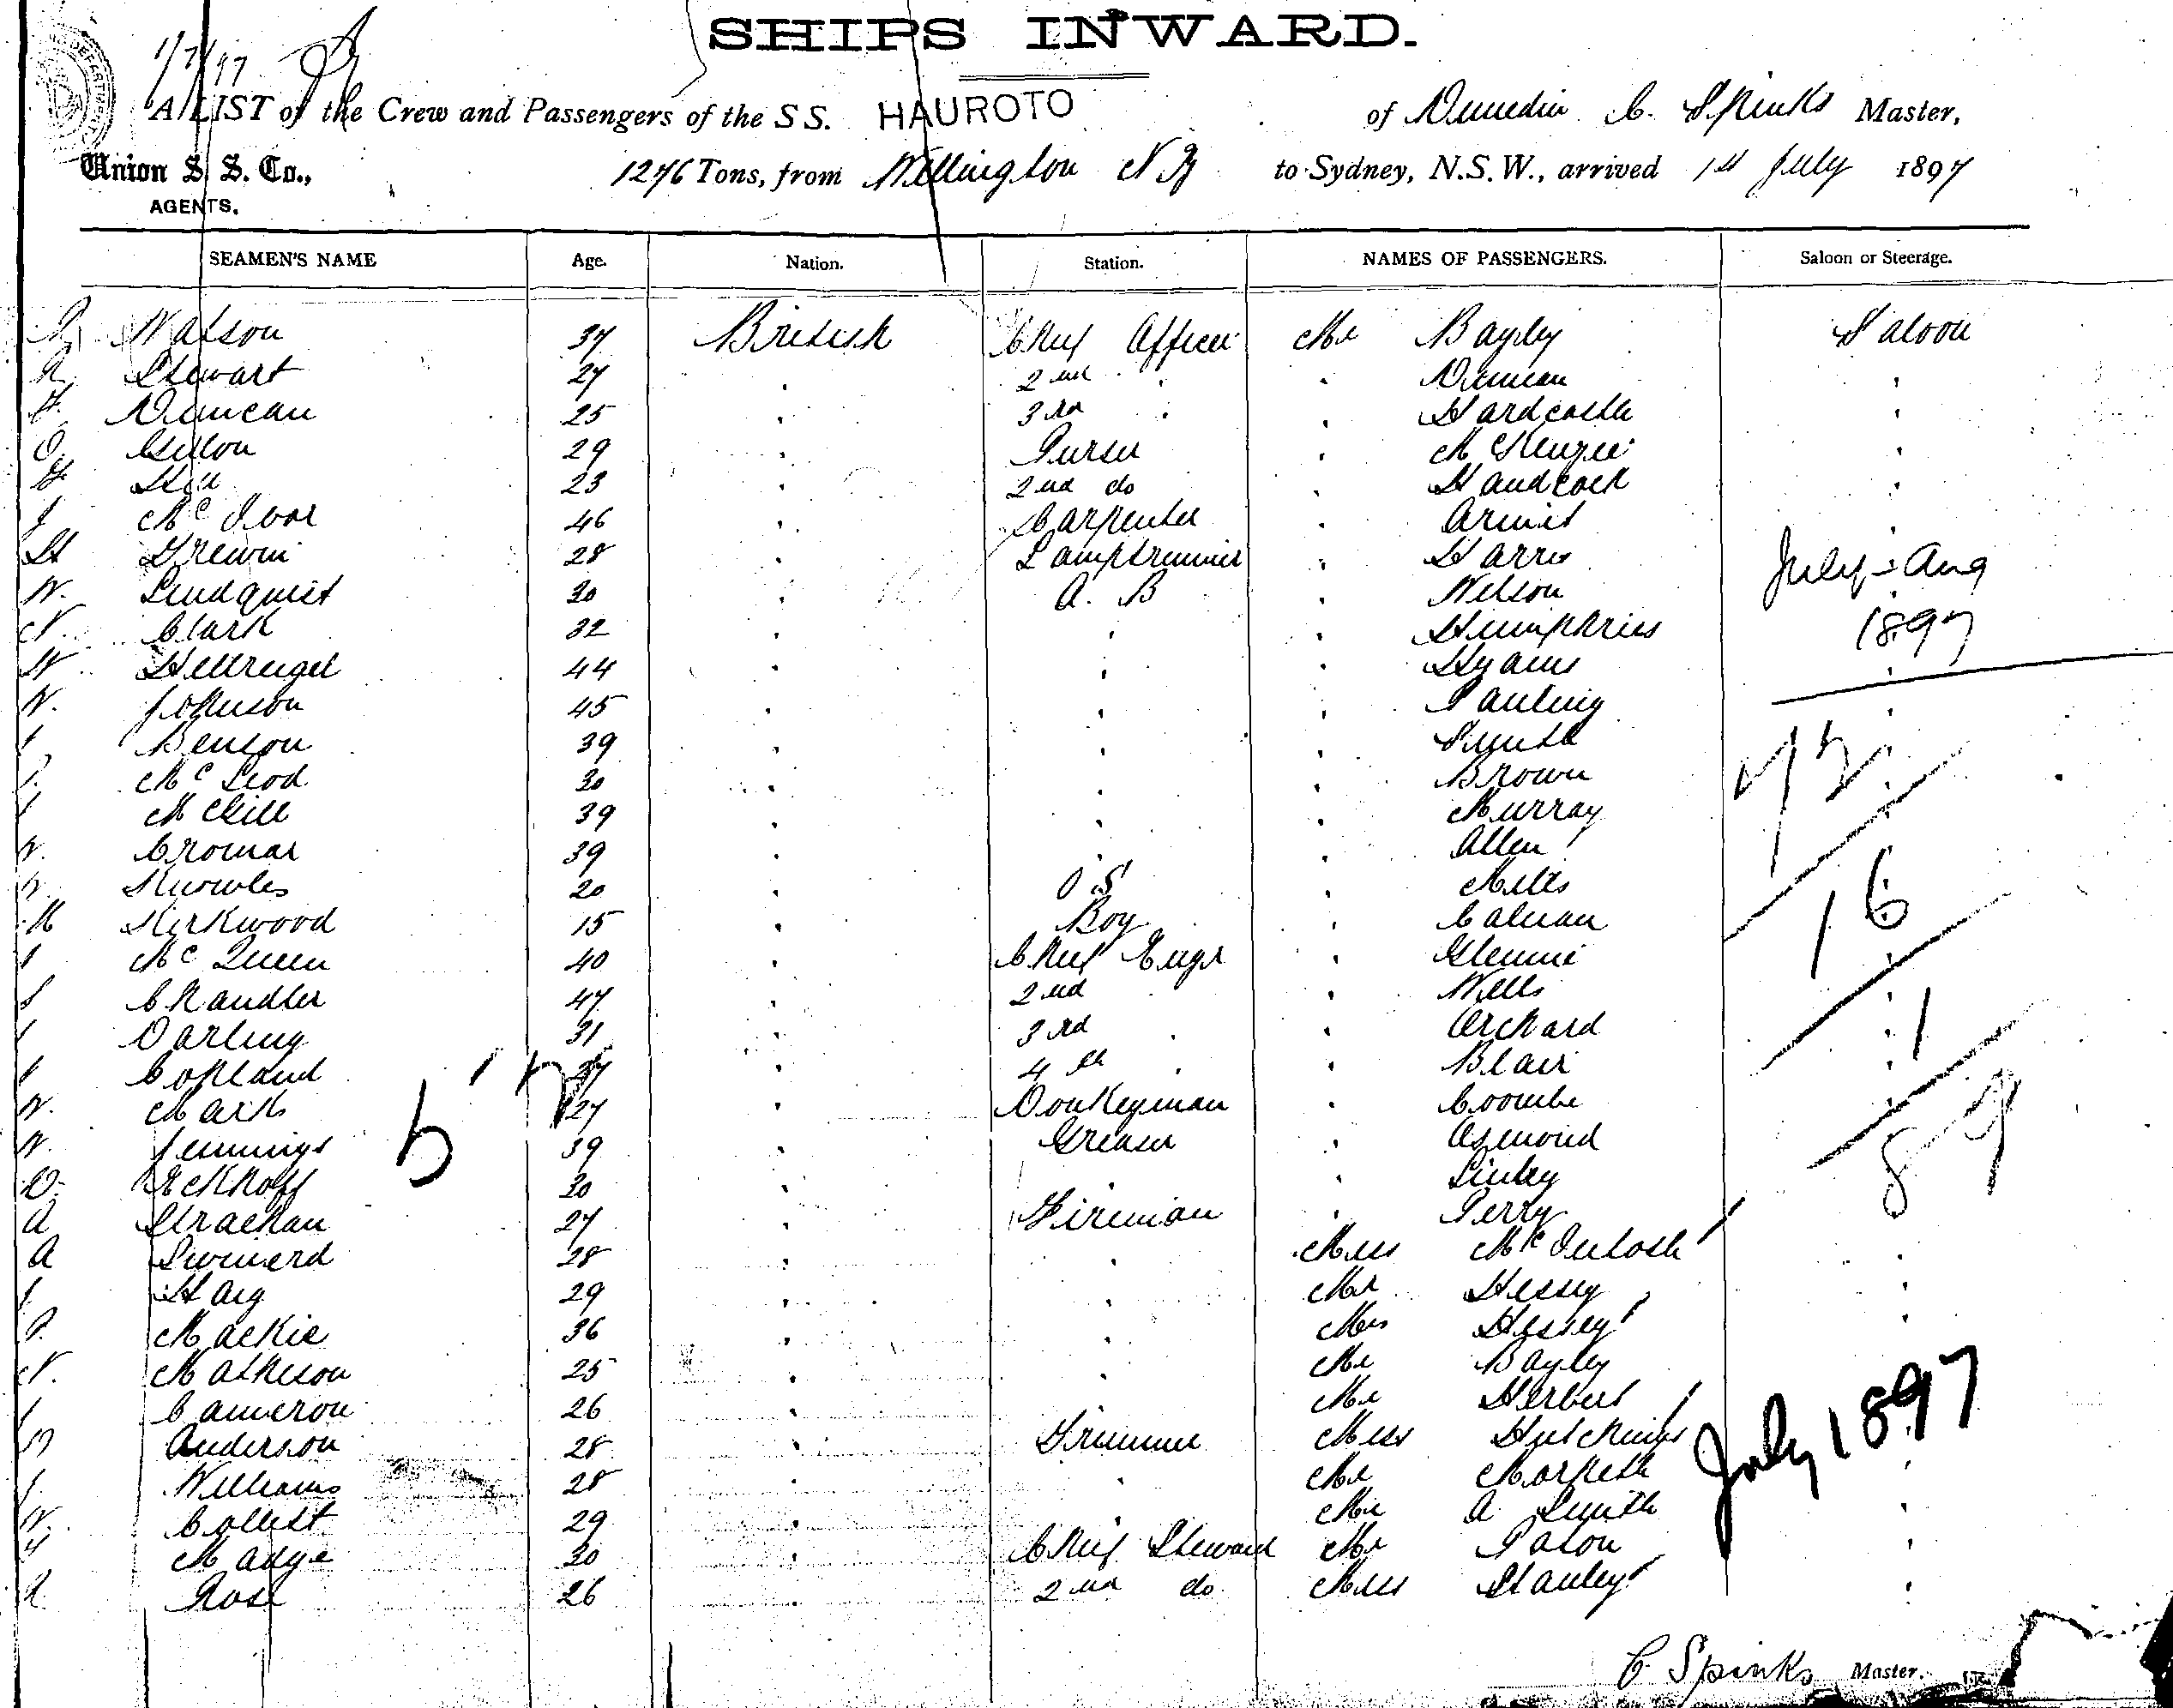 SHIPS INWARD.
1/7/97
A LIST of the Crew and Passengers of the S S. HAUROTO of Dunedin C. Spinks Master,
Union S. S. Co., 1276 Tons, from Wellington N Z to Sydney, N.S.W., arrived 1st July 1897
AGENTS.
SEAMEN'S NAME Age. Nation. Station. NAMES OF PASSENGERS. Saloon or Steerage.
Watson 37 British Chief Officer Mr Bayley Saloon
Stewart 27 2nd Duncan
Duncan 25 3rd Hardcastle
29 Purser McKenzie
23 2nd do Handcock
J McIvor 46 Carpenter
H 28 Lamptrimmer Harris
W. Lindquist 30 A. B Nelson
N. Clark 32 Humphries
44 Hyams
W. Johnson 45 Pauling
J Benson 39 Smith
McLeod 30 Brown
J McNeill 39 Murray
W. Cromar 39 Allen
W. Knowles 20 O S
Kirkwood 15 Boy
J McQueen 40 Chief Engr Glennie
Chandler 47 2nd Wells
J Darling 31 3rd Orchard
J Copland 4th Blair
W. 27 Donkeyman Coombe
W. Jennings 39 Greaser Osmond
O. Eckhoff 30
A Strachan 27 Fireman Perry
A 28 Miss McIntosh
J Haig 29 Mr Hessey
Mackie 36 Mrs Hessey
N. Matheson 25 Mr Bayley
J Cameron 26 Mr Herbert
Anderson 28 Trimmer Miss Hutchings
J. Williams 28 Mr Morpeth
W. 29 Mr A Smith
Madge 30 Chief Steward Mr Paton
R Rose 26 2nd do Miss Stanley
July - Aug
1897
16
1
89
July 1897
C Spinks Master.